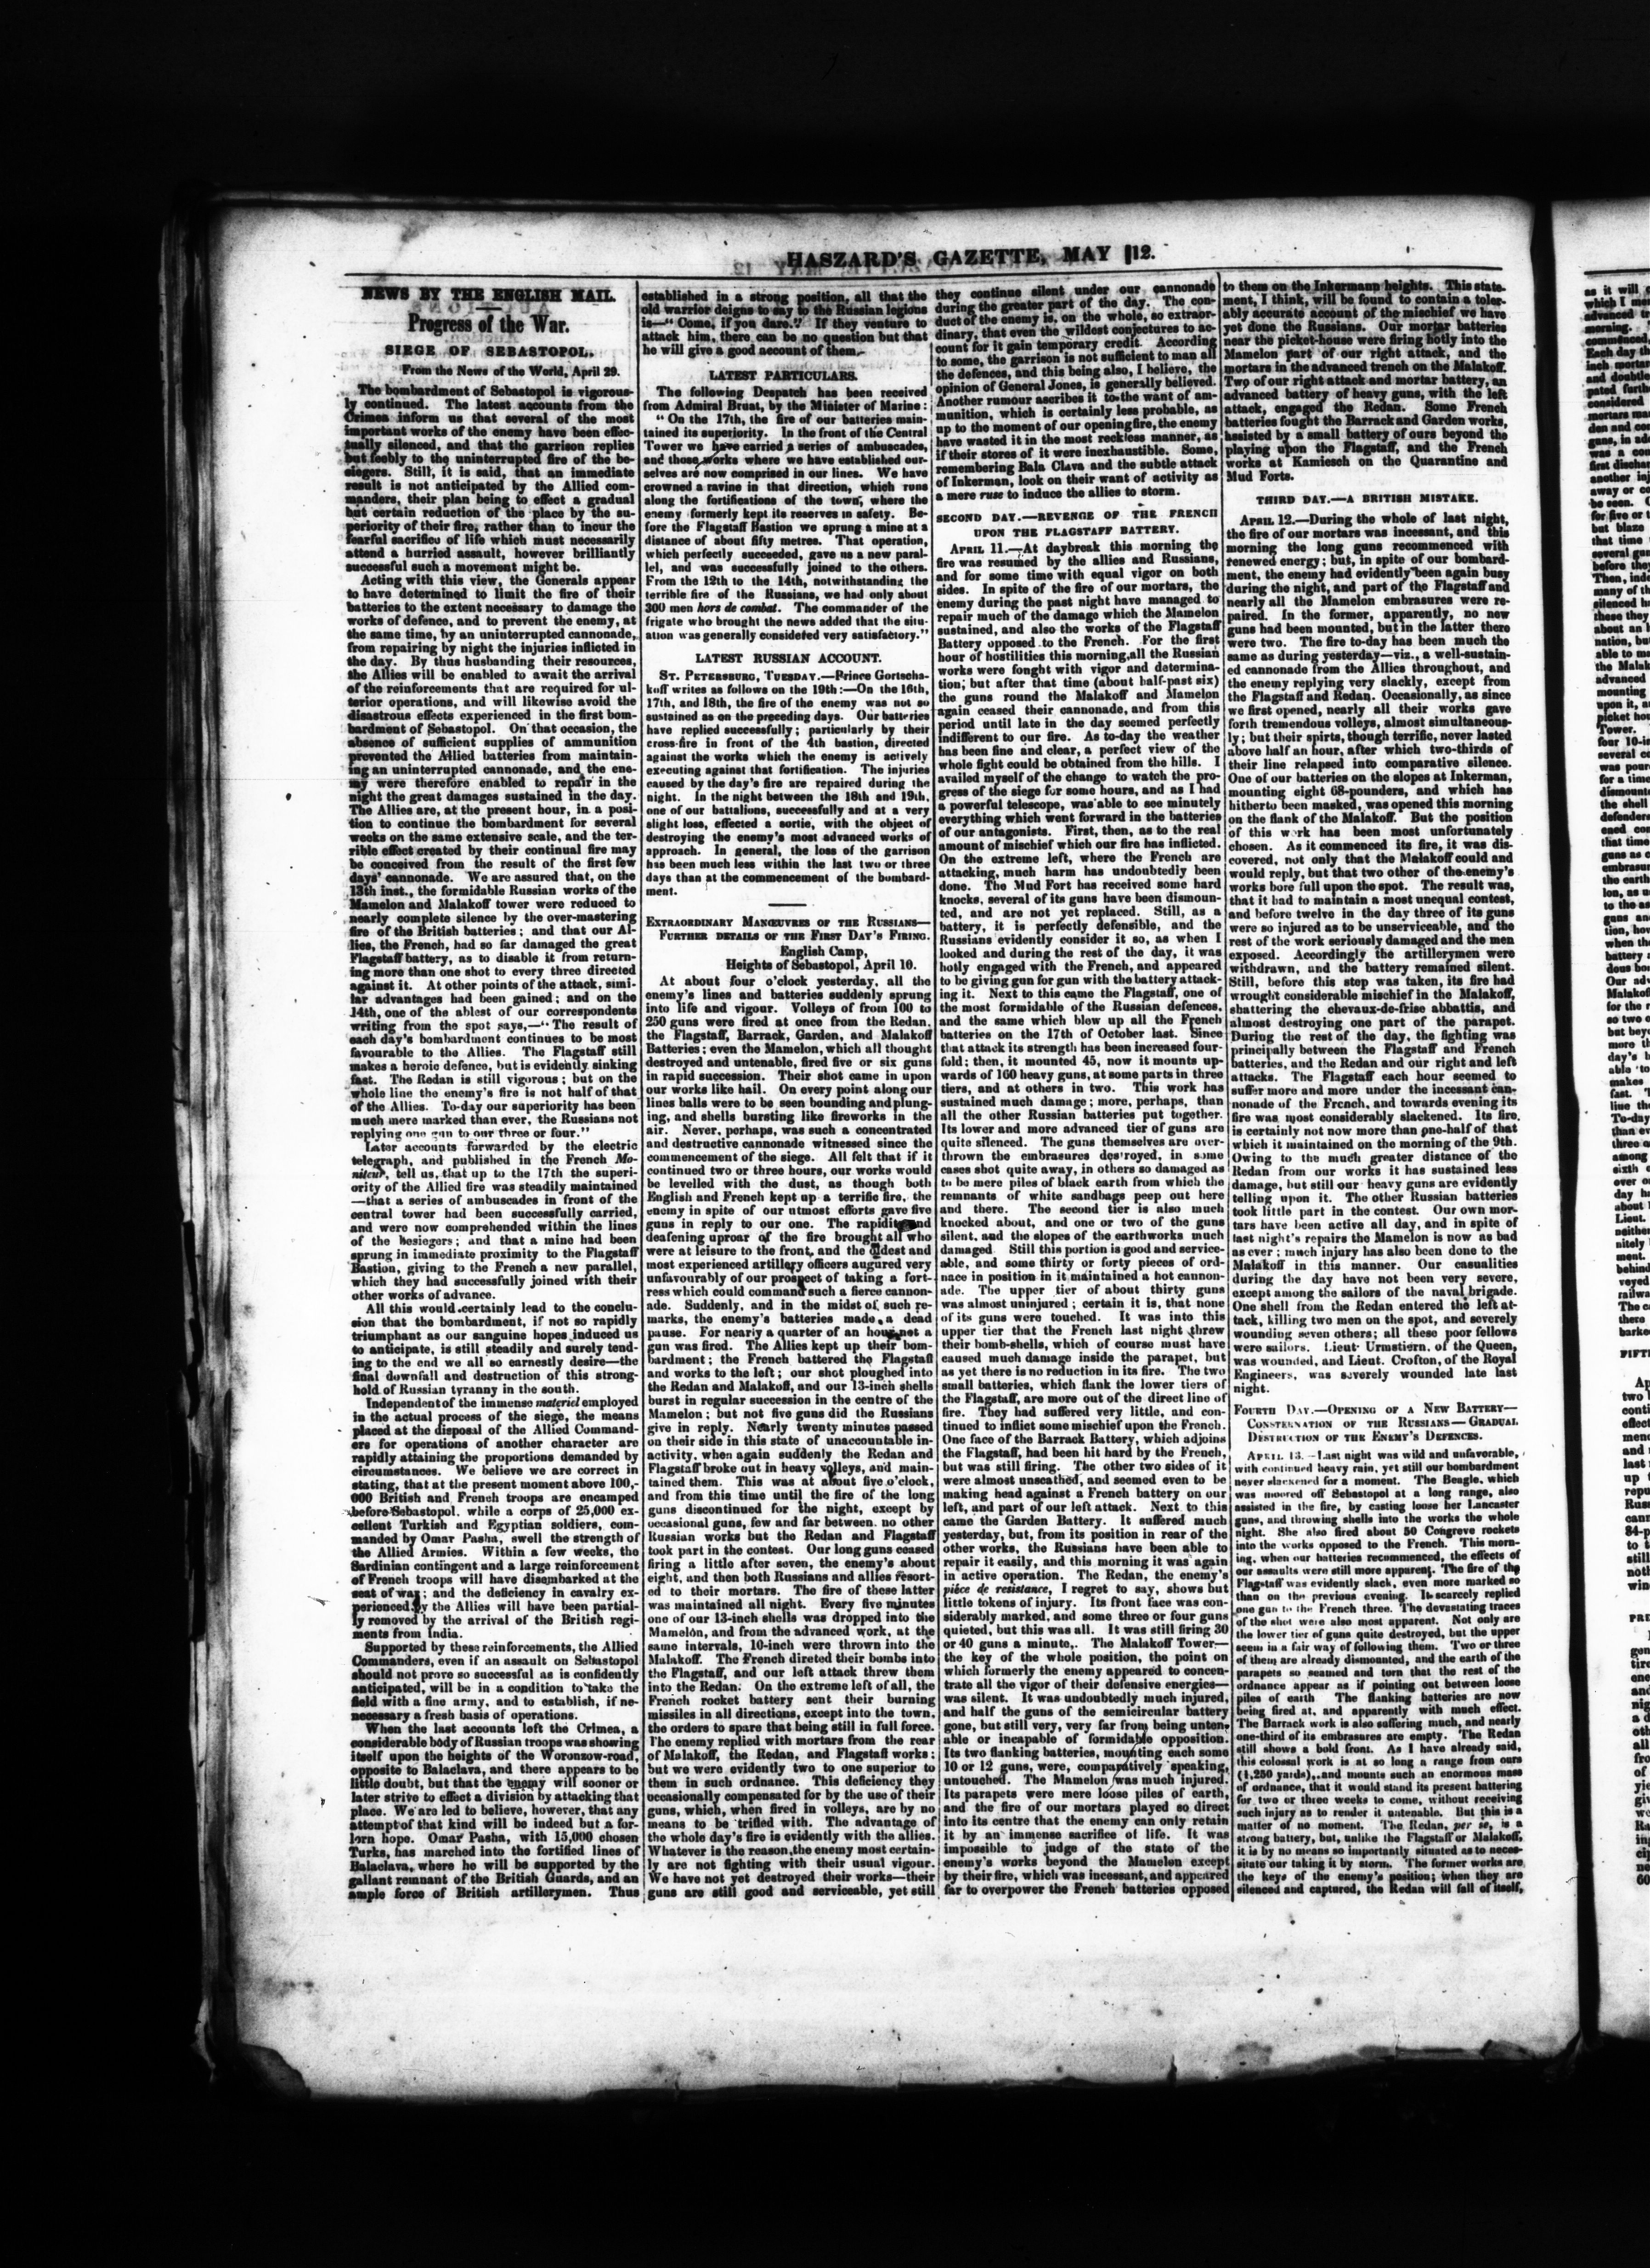 HASZARD'S GAZETTE, MAY 12.
NEWS BY THE ENGLISH MAIL.
Progress of the War.
SIEGE OF SEBASTOPOL.
From the News of the World, April 29.
The bombardment of Sebastopol is vigorous-
ly continued. The latest accounts from the
Crimea inform us that several of the most
important works of the enemy have been effec-
tually silenced, and that the garrison replies
but feebly to the uninterrupted fire of the be-
siegers. Still, it is said, that an immediate
result is not anticipated by the Allied com-
manders, their plan being to effect a gradual
but certain reduction of the place by the su-
periority of their fire, rather than to incur the
fearful sacrifice of life which must necessarily
attend a hurried assault, however brilliantly
successful such a movement might be.
Acting with this view, the Generals appear
to have determined to limit the fire of their
batteries to the extent necessary to damage the
works of defence, and to prevent the enemy, at
the same time, by an uninterrupted cannonade,
from repairing by night the injuries inflicted in
the day. By thus husbanding their resources,
the Allies will be enabled to await the arrival
of the reinforcements that are required for ul-
terior operations, and will likewise avoid the
disastrous effects experienced in the first bom-
bardment of Sebastopol. On that occasion, the
absence of sufficient supplies of ammunition
prevented the Allied batteries from maintain-
ing an uninterrupted cannonade, and the ene-
my were therefore enabled to repair in the
night the great damages sustained in the day.
The Allies are, at the present hour, in a posi-
tion to continue the bombardment for several
weeks on the same extensive scale, and the ter-
rible effect created by their continual fire may
be conceived from the result of the first few
days' cannonade. We are assured that, on the
13th inst., the formidable Russian works of the
Mamelon and Malakoff tower were reduced to
nearly complete silence by the over-mastering
fire of the British batteries; and that our Al-
lies, the French, had so far damaged the great
Flagstaff battery, as to disable it from return-
ing more than one shot to every three directed
against it. At other points of the attack, simi-
lar advantages had been gained; and on the
14th, one of the ablest of our correspondents
writing from the spot says,—"The result of
each day's bombardment continues to be most
favourable to the Allies. The Flagstaff still
makes a heroic defence, but is evidently sinking
fast. The Redan is still vigorous; but on the
whole line the enemy's fire is not half of that
of the Allies. To-day our superiority has been
much more marked than ever, the Russians not
replying one gun to our three or four."
Later accounts forwarded by the electric
telegraph, and published in the French Mo-
niteur, tell us, that up to the 17th the superi-
ority of the Allied fire was steadily maintained
—that a series of ambuscades in front of the
central tower had been successfully carried,
and were now comprehended within the lines
of the besiegers; and that a mine had been
sprung in immediate proximity to the Flagstaff
Bastion, giving to the French a new parallel,
which they had successfully joined with their
other works of advance.
All this would certainly lead to the conclu-
sion that the bombardment, if not so rapidly
triumphant as our sanguine hopes induced us
to anticipate, is still steadily and surely tend-
ing to the end we all so earnestly desire—the
final downfall and destruction of this strong-
hold of Russian tyranny in the south.
Independent of the immense materiel employed
in the actual process of the siege, the means
placed at the disposal of the Allied Command-
ers for operations of another character are
rapidly attaining the proportions demanded by
circumstances. We believe we are correct in
stating, that at the present moment above 100,-
000 British and French troops are encamped
before Sebastopol, while a corps of 25,000 ex-
cellent Turkish and Egyptian soldiers, com-
manded by Omar Pasha, swell the strength of
the Allied Armies. Within a few weeks, the
Sardinian contingent and a large reinforcement
of French troops will have disembarked at the
seat of war; and the deficiency in cavalry ex-
perienced by the Allies will have been partial-
ly removed by the arrival of the British regi-
ments from India.
Supported by these reinforcements, the Allied
Commanders, even if an assault on Sebastopol
should not prove so successful as is confidently
anticipated, will be in a condition to take the
field with a fine army, and to establish, if ne-
necessary a fresh basis of operations.
When the last accounts left the Crimea, a
considerable body of Russian troops was showing
itself upon the heights of the Woronzow-road,
opposite to Balaclava, and there appears to be
little doubt, but that the enemy will sooner or
later strive to effect a division by attacking that
place. We are led to believe, however, that any
attempt of that kind will be indeed but a for-
lorn hope. Omar Pasha, with 15,000 chosen
Turks, has marched into the fortified lines of
Balaclava, where he will be supported by the
gallant remnant of the British Guards, and an
ample force of British artillerymen. Thus
established in a strong position, all that the
old warrior deigns to say to the Russian legions
is—"Come, if you dare." If they venture to
attack him, there can be no question but that
he will give a good account of them.
LATEST PARTICULARS.
The following Despatch has been received
from Admiral Bruat, by the Minister of Marine:
"On the 17th, the fire of our batteries main-
tained its superiority. In the front of the Central
Tower we have carried a series of ambuscades,
and those works where we have established our-
selves are now comprised in our lines. We have
crowned a ravine in that direction, which runs
along the fortifications of the town, where the
enemy formerly kept its reserves in safety. Be-
fore the Flagstaff Bastion we sprung a mine at a
distance of about fifty metres. That operation,
which perfectly succeeded, gave us a new paral-
lel, and was successfully joined to the others.
From the 12th to the 14th, notwithstanding the
terrible fire of the Russians, we had only about
300 men hors de combat. The commander of the
frigate who brought the news added that the situ-
ation was generally considered very satisfactory."
LATEST RUSSIAN ACCOUNT.
ST. PETERSBURG, TUESDAY.—Prince Gortscha-
koff writes as follows on the 19th:—On the 16th,
17th, and 18th, the fire of the enemy was not so
sustained as on the preceding days. Our batteries
have replied successfully; particularly by their
cross-fire in front of the 4th bastion, directed
against the works which the enemy is actively
executing against that fortification. The injuries
caused by the day's fire are repaired during the
night. In the night between the 18th and 19th,
one of our battalions, successfully and at a very
slight loss, effected a sortie, with the object of
destroying the enemy's most advanced works of
approach. In general, the loss of the garrison
has been much less within the last two or three
days than at the commencement of the bombard-
ment.
EXTRAORDINARY MANŒUVRES OF THE RUSSIANS—
FURTHER DETAILS OF THE FIRST DAY'S FIRING.
English Camp,
Heights of Sebastopol, April 10.
At about four o'clock yesterday, all the
enemy's lines and batteries suddenly sprung
into life and vigour. Volleys of from 100 to
250 guns were fired at once from the Redan,
the Flagstaff, Barrack, Garden, and Malakoff
Batteries; even the Mamelon, which all thought
destroyed and untenable, fired five or six guns
in rapid succession. Their shot came in upon
our works like hail. On every point along our
lines balls were to be seen bounding and plung-
ing, and shells bursting like fireworks in the
air. Never, perhaps, was such a concentrated
and destructive cannonade witnessed since the
commencement of the siege. All felt that if it
continued two or three hours, our works would
be levelled with the dust, as though both
English and French kept up a terrific fire, the
enemy in spite of our utmost efforts gave five
guns in reply to our one. The rapidity and
deafening uproar of the fire brought all who
were at leisure to the front, and the oldest and
most experienced artillery officers augured very
unfavourably of our prospect of taking a fort-
ress which could command such a fierce cannon-
ade. Suddenly, and in the midst of such re-
marks, the enemy's batteries made a dead
pause. For nearly a quarter of an hour not a
gun was fired. The Allies kept up their bom-
bardment; the French battered the Flagstaff
and works to the left; our shot ploughed into
the Redan and Malakoff, and our 13-inch shells
burst in regular succession in the centre of the
Mamelon; but not five guns did the Russians
give in reply. Nearly twenty minutes passed
on their side in this state of unaccountable in-
activity, when again suddenly the Redan and
Flagstaff broke out in heavy volleys, and main-
tained them. This was at about five o'clock,
and from this time until the fire of the long
guns discontinued for the night, except by
occasional guns, few and far between, no other
Russian works but the Redan and Flagstaff
took part in the contest. Our long guns ceased
firing a little after seven, the enemy's about
eight, and then both Russians and allies resort-
ed to their mortars. The fire of these latter
was maintained all night. Every five minutes
one of our 13-inch shells was dropped into the
Mamelon, and from the advanced work, at the
same intervals, 10-inch were thrown into the
Malakoff. The French direted their bombs into
the Flagstaff, and our left attack threw them
into the Redan. On the extreme left of all, the
French rocket battery sent their burning
missiles in all directions, except into the town,
the orders to spare that being still in full force.
The enemy replied with mortars from the rear
of Malakoff, the Redan, and Flagstaff works;
but we were evidently two to one superior to
them in such ordnance. This deficiency they
occasionally compensated for by the use of their
guns, which, when fired in volleys, are by no
means to be trifled with. The advantage of
the whole day's fire is evidently with the allies.
Whatever is the reason, the enemy most certain-
ly are not fighting with their usual vigour.
We have not yet destroyed their works—their
guns are still good and serviceable, yet still
they continue silent under our cannonade
during the greater part of the day. The con-
duct of the enemy is, on the whole, so extraor-
dinary, that even the wildest conjectures to ac-
count for it gain temporary credit. According
to some, the garrison is not sufficient to man all
the defences, and this being also, I believe, the
opinion of General Jones, is generally believed.
Another rumour ascribes it to the want of am-
munition, which is certainly less probable, as
up to the moment of our opening fire, the enemy
have wasted it in the most reckless manner, as
if their stores of it were inexhaustible. Some,
remembering Bala Clava and the subtle attack
of Inkerman, look on their want of activity as
a mere ruse to induce the allies to storm.
SECOND DAY.—REVENGE OF THE FRENCH
UPON THE FLAGSTAFF BATTERY.
APRIL 11.—At daybreak this morning the
fire was resumed by the allies and Russians,
and for some time with equal vigor on both
sides. In spite of the fire of our mortars, the
enemy during the past night have managed to
repair much of the damage which the Mamelon
sustained, and also the works of the Flagstaff
Battery opposed to the French. For the first
hour of hostilities this morning, all the Russian
works were fought with vigor and determina-
tion; but after that time (about half-past six)
the guns round the Malakoff and Mamelon
again ceased their cannonade, and from this
period until late in the day seemed perfectly
indifferent to our fire. As to-day the weather
has been fine and clear, a perfect view of the
whole fight could be obtained from the hills. I
availed myself of the change to watch the pro-
gress of the siege for some hours, and as I had
a powerful telescope, was able to see minutely
everything which went forward in the batteries
of our antagonists. First, then, as to the real
amount of mischief which our fire has inflicted.
On the extreme left, where the French are
attacking, much harm has undoubtedly been
done. The Mud Fort has received some hard
knocks, several of its guns have been dismoun-
ted, and are not yet replaced. Still, as a
battery, it is perfectly defensible, and the
Russians evidently consider it so, as when I
looked and during the rest of the day, it was
hotly engaged with the French, and appeared
to be giving gun for gun with the battery attack-
ing it. Next to this came the Flagstaff, one of
the most formidable of the Russian defences,
and the same which blow up all the French
batteries on the 17th of October last. Since
that attack its strength has been increased four-
fold; then, it mounted 45, now it mounts up-
wards of 160 heavy guns, at some parts in three
tiers, and at others in two. This work has
sustained much damage; more, perhaps, than
all the other Russian batteries put together.
Its lower and more advanced tier of guns are
quite silenced. The guns themselves are over-
thrown the embrasures destroyed, in some
cases shot quite away, in others so damaged as
to be mere piles of black earth from which the
remnants of white sandbags peep out here
and there. The second tier is also much
knocked about, and one or two of the guns
silent, and the slopes of the earthworks much
damaged Still this portion is good and service-
able, and some thirty or forty pieces of ord-
nace in position in it maintained a hot cannon-
ade. The upper tier of about thirty guns
was almost uninjured; certain it is, that none
of its guns were touched. It was into this
upper tier that the French last night threw
their bomb-shells, which of course must have
caused much damage inside the parapet, but
as yet there is no reduction in its fire. The two
small batteries, which flank the lower tiers of
the Flagstaff, are more out of the direct line of
fire. They had suffered very little, and con-
tinued to inflict some mischief upon the French.
One face of the Barrack Battery, which adjoins
the Flagstaff, had been hit hard by the French,
but was still firing. The other two sides of it
were almost unscathed, and seemed even to be
making head against a French battery on our
left, and part of our left attack. Next to this
came the Garden Battery. It suffered much
yesterday, but, from its position in rear of the
other works, the Russians have been able to
repair it easily, and this morning it was again
in active operation. The Redan, the enemy's
piéce de resistance, I regret to say, shows but
little tokens of injury. Its front face was con-
siderably marked, and some three or four guns
quieted, but this was all. It was still firing 30
or 40 guns a minute. The Malakoff Tower—
the key of the whole position, the point on
which formerly the enemy appeared to concen-
trate all the vigor of their defensive energies—
was silent. It was undoubtedly much injured,
and half the guns of the semicircular battery
gone, but still very, very far from being unten-
able or incapable of formidable opposition.
Its two flanking batteries, mounting each some
10 or 12 guns, were, comparatively speaking,
untouched. The Mamelon was much injured.
Its parapets were mere loose piles of earth,
and the fire of our mortars played so direct
into its centre that the enemy can only retain
it by an immense sacrifice of life. It was
impossible to judge of the state of the
enemy's works beyond the Mamelon except
by their fire, which was incessant, and appeared
far to overpower the French batteries opposed
to them on the Inkermann heights. This state-
ment, I think, will be found to contain a toler-
ably accurate account of the mischief we have
yet done the Russians. Our mortar batteries
near the picket-house were firing hotly into the
Mamelon part of our right attack, and the
mortars in the advanced trench on the Malakoff.
Two of our right attack and mortar battery, an
advanced battery of heavy guns, with the left
attack, engaged the Redan. Some French
batteries fought the Barrack and Garden works,
assisted by a small battery of ours beyond the
playing upon the Flagstaff, and the French
works at Kamiesch on the Quarantine and
Mud Forts.
THIRD DAY.—A BRITISH MISTAKE.
APRIL 12.—During the whole of last night,
the fire of our mortars was incessant, and this
morning the long guns recommenced with
renewed energy; but, in spite of our bombard-
ment, the enemy had evidently been again busy
during the night, and part of the Flagstaff and
nearly all the Mamelon embrasures were re-
paired. In the former, apparently, no new
guns had been mounted, but in the latter there
were two. The fire to-day has been much the
same as during yesterday—viz., a well-sustain-
ed cannonade from the Allies throughout, and
the enemy replying very slackly, except from
the Flagstaff and Redan. Occasionally, as since
we first opened, nearly all their works gave
forth tremendous volleys, almost simultaneous-
ly; but their spirts, though terrific, never lasted
above half an hour, after which two-thirds of
their line relapsed into comparative silence.
One of our batteries on the slopes at Inkerman,
mounting eight 68-pounders, and which has
hitherto been masked, was opened this morning
on the flank of the Malakoff. But the position
of this work has been most unfortunately
chosen. As it commenced its fire, it was dis-
covered, not only that the Malakoff could and
would reply, but that two other of the enemy's
works bore full upon the spot. The result was,
that it had to maintain a most unequal contest,
and before twelve in the day three of its guns
were so injured as to be unserviceable, and the
rest of the work seriously damaged and the men
exposed. Accordingly the artillerymen were
withdrawn, and the battery remained silent.
Still, before this step was taken, its fire had
wrought considerable mischief in the Malakoff,
shattering the chevaux-de-frise abbattis, and
almost destroying one part of the parapet.
During the rest of the day, the fighting was
principally between the Flagstaff and French
batteries, and the Redan and our right and left
attacks. The Flagstaff each hour seemed to
suffer more and more under the incessant can-
nonade of the French, and towards evening its
fire was most considerably slackened. Its fire,
is certainly not now more than one-half of that
which it maintained on the morning of the 9th.
Owing to the much greater distance of the
Redan from our works it has sustained less
damage, but still our heavy guns are evidently
telling upon it. The other Russian batteries
took little part in the contest. Our own mor-
tars have been active all day, and in spite of
last night's repairs the Mamelon is now as bad
as ever; much injury has also been done to the
Malakoff in this manner. Our casualties
during the day have not been very severe,
except among the sailors of the naval brigade.
One shell from the Redan entered the left at-
tack, killing two men on the spot, and severely
wounding seven others; all these poor fellows
were sailors. Lieut. Urmstiern, of the Queen,
was wounded, and Lieut. Crofton, of the Royal
Engineers, was severely wounded late last
night.
FOURTH DAY.—OPENING OF A NEW BATTERY—
CONSTERNATION OF THE RUSSIANS—GRADUAL
DESTRUCTION OF THE ENEMY'S DEFENCES.
APRIL 13.—Last night was wild and unfavorable,
with continued heavy rain, yet still our bombardment
never slackened for a moment. The Beagle, which
was moored off Sebastopol at a long range, also
assisted in the fire, by casting loose her Lancaster
guns, and throwing shells into the works the whole
night. She also fired about 50 Congreve rockets
into the works opposed to the French. This morn-
ing, when our batteries recommenced, the effects of
our assaults were still more apparent. The fire of the
Flagstaff was evidently slack, even more marked so
than on the previous evening. It scarcely replied
one gun to the French three. The devastating traces
of the shot were also most apparent. Not only are
the lower tier of guns quite destroyed, but the upper
seem in a fair way of following them. Two or three
of them are already dismounted, and the earth of the
parapets so seamed and torn that the rest of the
ordnance appear as if pointing out between loose
piles of earth The flanking batteries are now
being fired at, and apparently with much effect.
The Barrack work is also suffering much, and nearly
one-third of its embrasures are empty. The Redan
still shows a bold front. As I have already said,
this colossal work is at so long a range from ours
(1,250 yards), and mounts such an enormous mass
of ordnance, that it would stand its present battering
for two or three weeks to come, without receiving
such injury as to render it untenable. But this is a
matter of no moment. The Redan, per se, is a
strong battery, but, unlike the Flagstaff or Malakoff,
it is by no means so importantly situated as to neces-
sitate our taking it by storm. The former works are
the keys of the enemy's position; when they are
silenced and captured, the Redan will fall of itself,